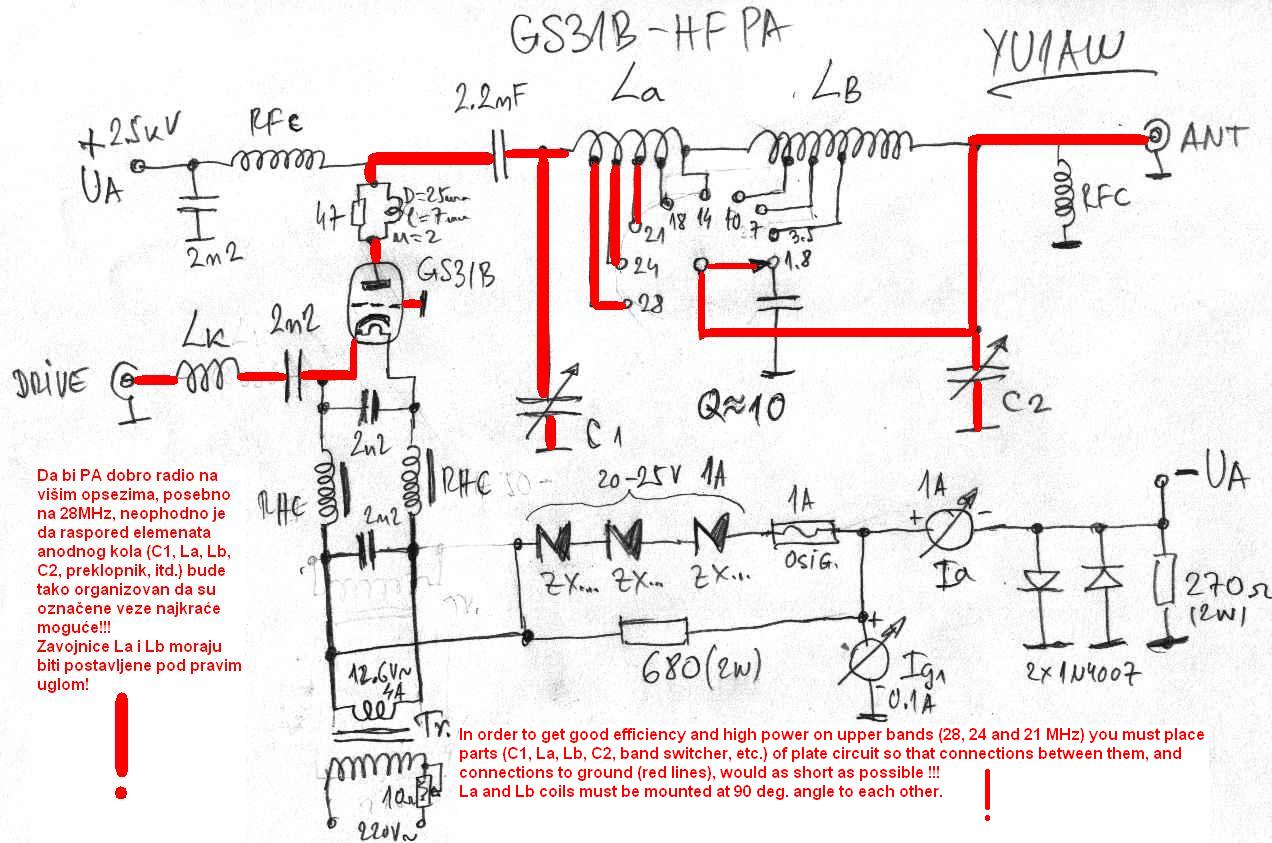 GS31B-HF PA
YU1AW
2.2nF
La
LB
+2.5kV
UA
RFC
ANT
2n2
47
D=25mm
l=7mm
n=2
18
14
10
7
3.5
1.8
21
24
28
RFC
GS31B
2n2
LK
DRIVE
2n2
C1
Q≈10
C2
Da bi PA dobro radio na
višim opsezima, posebno
na 28MHz, neophodno je
da raspored elemenata
anodnog kola (C1, La, Lb,
C2, preklopnik, itd.) bude
tako organizovan da su
označene veze najkraće
moguće!!!
Zavojnice La i Lb moraju
biti postavljene pod pravim
uglom!
!
RFC
RFC
2n2
20-25V 1A
ZX...
ZX...
ZX...
1A
Osig.
1A
+
-
Ia
-UA
270Ω
(2W)
2x1N4007
680(2W)
+
Ig1
-
0.1A
12.6V~
4A
Tr.
10Ω
220V~
In order to get good efficiency and high power on upper bands (28, 24 and 21 MHz) you must place
parts (C1, La, Lb, C2, band switcher, etc.) of plate circuit so that connections between them, and
connections to ground (red lines), would as short as possible !!!
La and Lb coils must be mounted at 90 deg. angle to each other.
!